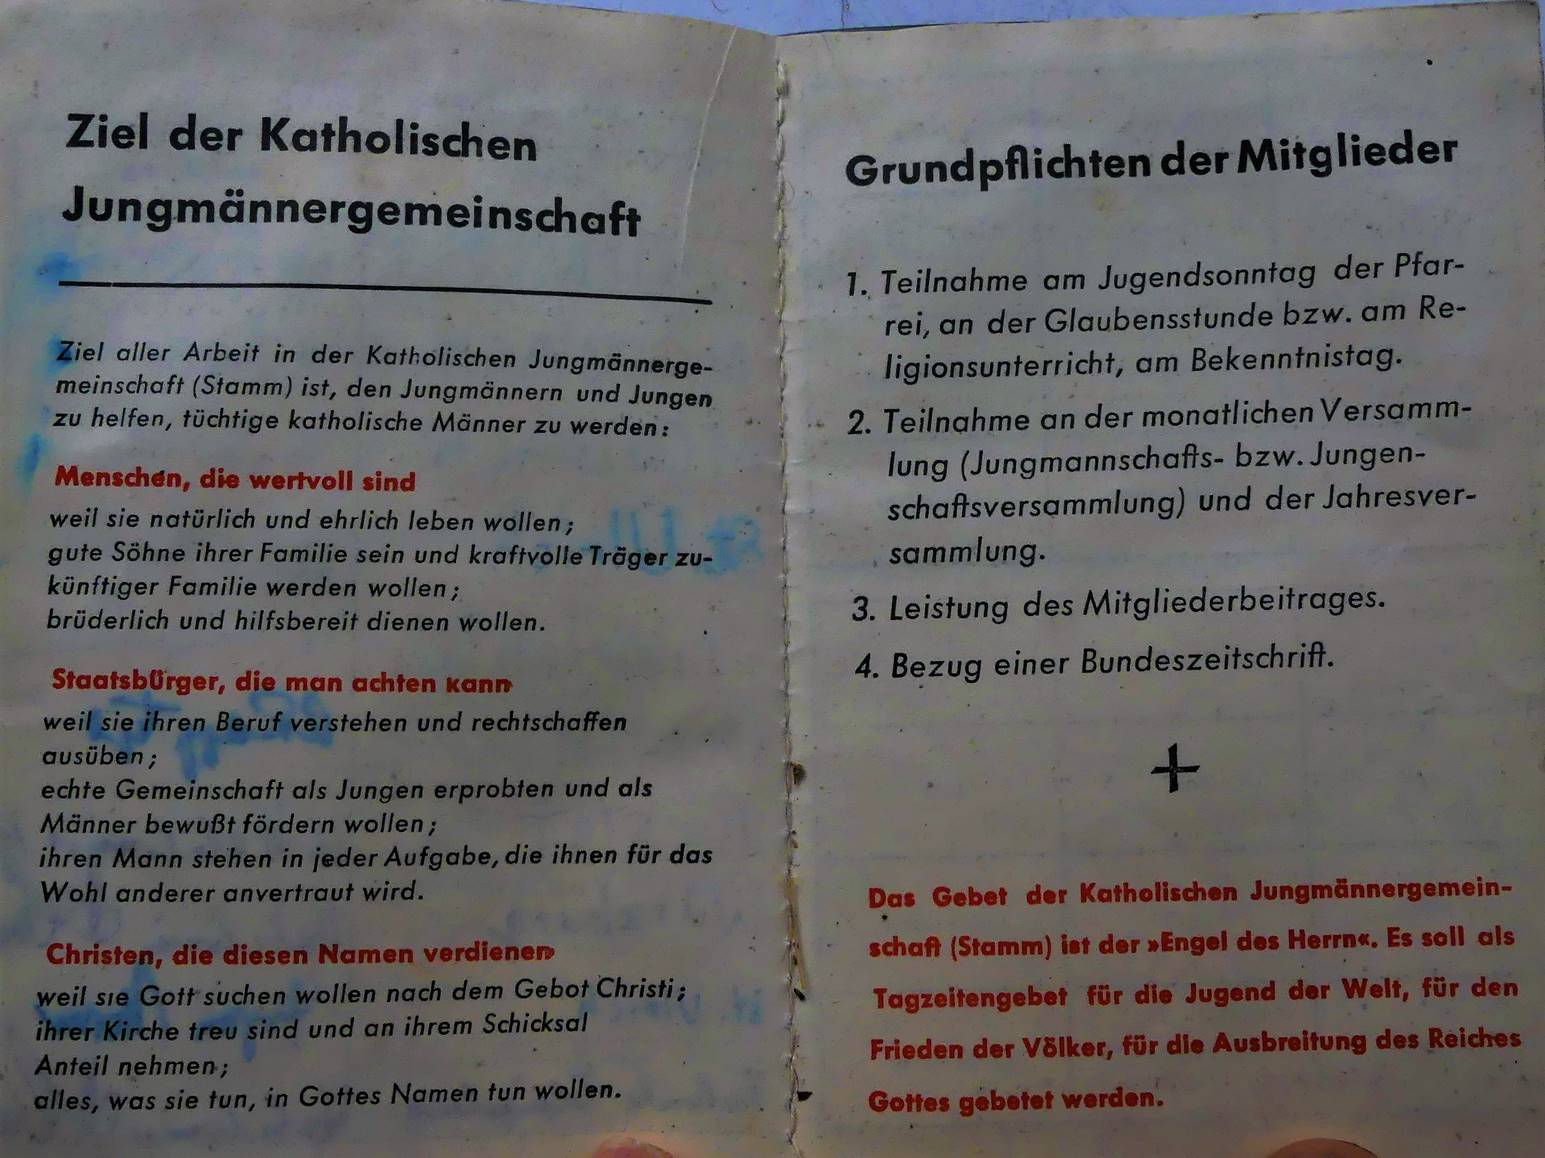 Ziel der Katholischen
Jungmännergemeinschaft
Ziel aller Arbeit in der Katholischen Jungmännerge-
meinschaft (Stamm) ist, den Jungmännern und Jungen
zu helfen, tüchtige katholische Männer zu werden:
Menschen, die wertvoll sind
weil sie natürlich und ehrlich leben wollen;
gute Söhne ihrer Familie sein und kraftvolle Träger zu-
künftiger Familie werden wollen;
brüderlich und hilfsbereit dienen wollen.
Staatsbürger, die man achten kann
weil sie ihren Beruf verstehen und rechtschaffen
ausüben;
echte Gemeinschaft als Jungen erprobten und als
Männer bewußt fördern wollen;
ihren Mann stehen in jeder Aufgabe, die ihnen für das
Wohl anderer anvertraut wird.
Christen, die diesen Namen verdienen
weil sie Gott suchen wollen nach dem Gebot Christi;
ihrer Kirche treu sind und an ihrem Schicksal
Anteil nehmen;
alles, was sie tun, in Gottes Namen tun wollen.
Grundpflichten der Mitglieder
1. Teilnahme am Jugendsonntag der Pfar-
rei, an der Glaubensstunde bzw. am Re-
ligionsunterricht, am Bekenntnistag.
2. Teilnahme an der monatlichen Versamm-
lung (Jungmannschafts- bzw. Jungen-
schaftsversammlung) und der Jahresver-
sammlung.
3. Leistung des Mitgliederbeitrages.
4. Bezug einer Bundeszeitschrift.
Das Gebet der Katholischen Jungmännergemein-
schaft (Stamm) ist der »Engel des Herrn«. Es soll als
Tagzeitengebet für die Jugend der Welt, für den
Frieden der Völker, für die Ausbreitung des Reiches
Gottes gebetet werden.